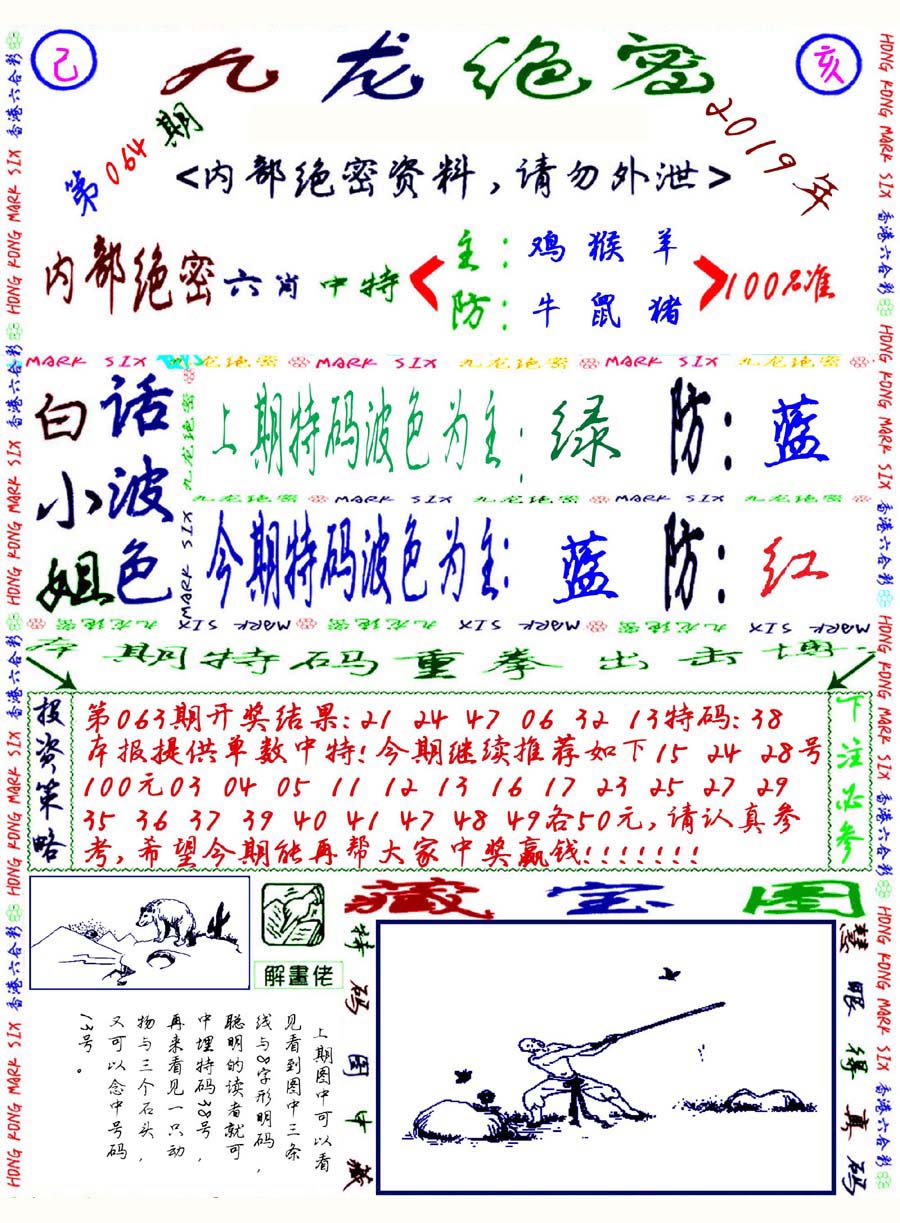 己
九龙绝密
亥
第064期
2019年
<内部绝密资料,请勿外泄>
内部绝密六肖中特
主:鸡猴羊
防:牛鼠猪
100%准
MARK SIX 九龙绝密 MARK SIX 九龙绝密 MARK SIX 九龙绝密
白小姐
话波色
上期特码波色为主:绿 防:蓝
九龙绝密 MARK SIX 九龙绝密 MARK SIX 九龙绝密
今期特码波色为主:蓝 防:红
九龙绝密 MARK SIX
九龙绝密 XIS MARK 九龙绝密 XIS MARK 九龙绝密 XIS MARK
本期特码重拳出击博
投资策略
第063期开奖结果:21 24 47 06 32 13特码:38
本报提供单数中特!今期继续推荐如下15 24 28号
100元03 04 05 11 12 13 16 17 23 25 27 29
35 36 37 39 40 41 47 48 49各50元,请认真参
考,希望今期能再帮大家中奖赢钱!!!!!!!
下注必参
解畫佬
藏宝图
特码图中藏
慧眼得真码
上期图中可以看
见看到图中三条
线与8字形明码,
聪明的读者就可
中埋特码38号,
再来看见一只动
物与三个石头,
又可以念中号码
13号。
HONG KONG MARK SIX 香港六合彩 HONG KONG MARK SIX 香港六合彩 HONG KONG MARK SIX 香港六合彩 HONG KONG MARK SIX 香港六合彩
HONG KONG MARK SIX 香港六合彩 HONG KONG MARK SIX 香港六合彩 HONG KONG MARK SIX 香港六合彩 HONG KONG MARK SIX 香港六合彩